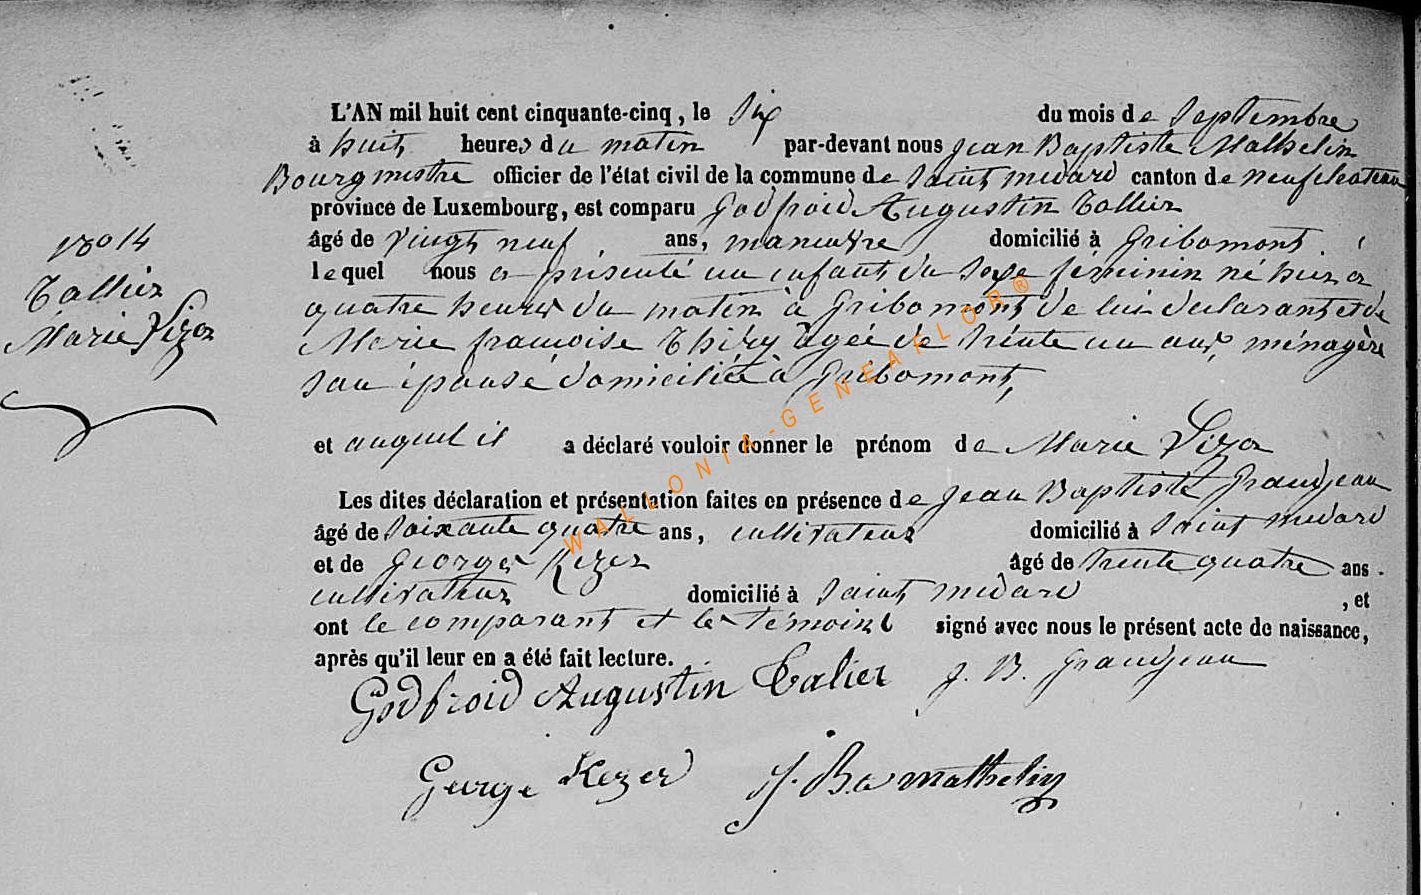 L'AN mil huit cent cinquante-cinq, le six du mois de Septembre
à huit heures du matin par-devant nous jean Baptiste Mathelin
Bourgmestre officier de l'état civil de la commune de Saint medard canton de neufchateau
province de Luxembourg, est comparu Godfroid Augustin Tallier
âgé de vingt neuf ans, maneuvre domicilié à Gribomont
lequel nous a présenté un enfant du sexe féminin né hier a
quatre heures du matin à Gribomont de lui déclarant et de
Marie françoise Thiry agée de trente un ans, ménagère
son épouse domiciliée à Gribomont,
et auquel il a déclaré vouloir donner le prénom de Marie
Les dites déclaration et présentation faites en présence de jean Baptiste Grandjean
âgé de soixante quatre ans, cultivateur domicilié à Saint medard
et de George Kezer âgé de trente quatre ans.
cultivateur domicilié à Saint medard , et
ont le comparant et les témoins signé avec nous le présent acte de naissance,
après qu'il leur en a été fait lecture.
Godfroid Augustin Talier J. B. Grandjean
George Kezer J. Bte mathelin
N° 14
Tallier
Marie
WALLONIA-GENEAFLOR®